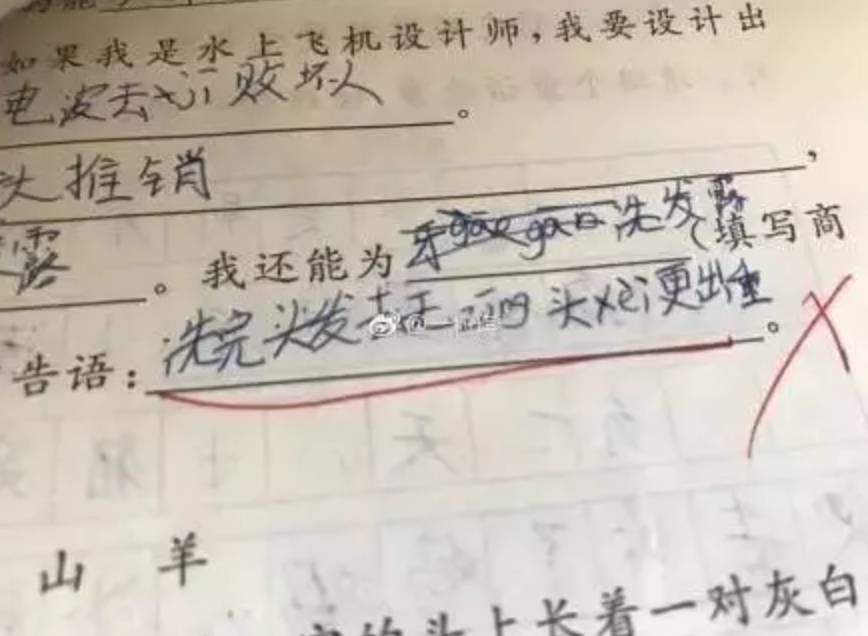 如果我是水上飞机设计师,我要设计出
电波去 打败坏人。
头推销,
露。我还能为 牙gao 洗发露(填写商
告语:洗完头发 ing 头xei更出重。
山 羊
的头上长着一对灰白